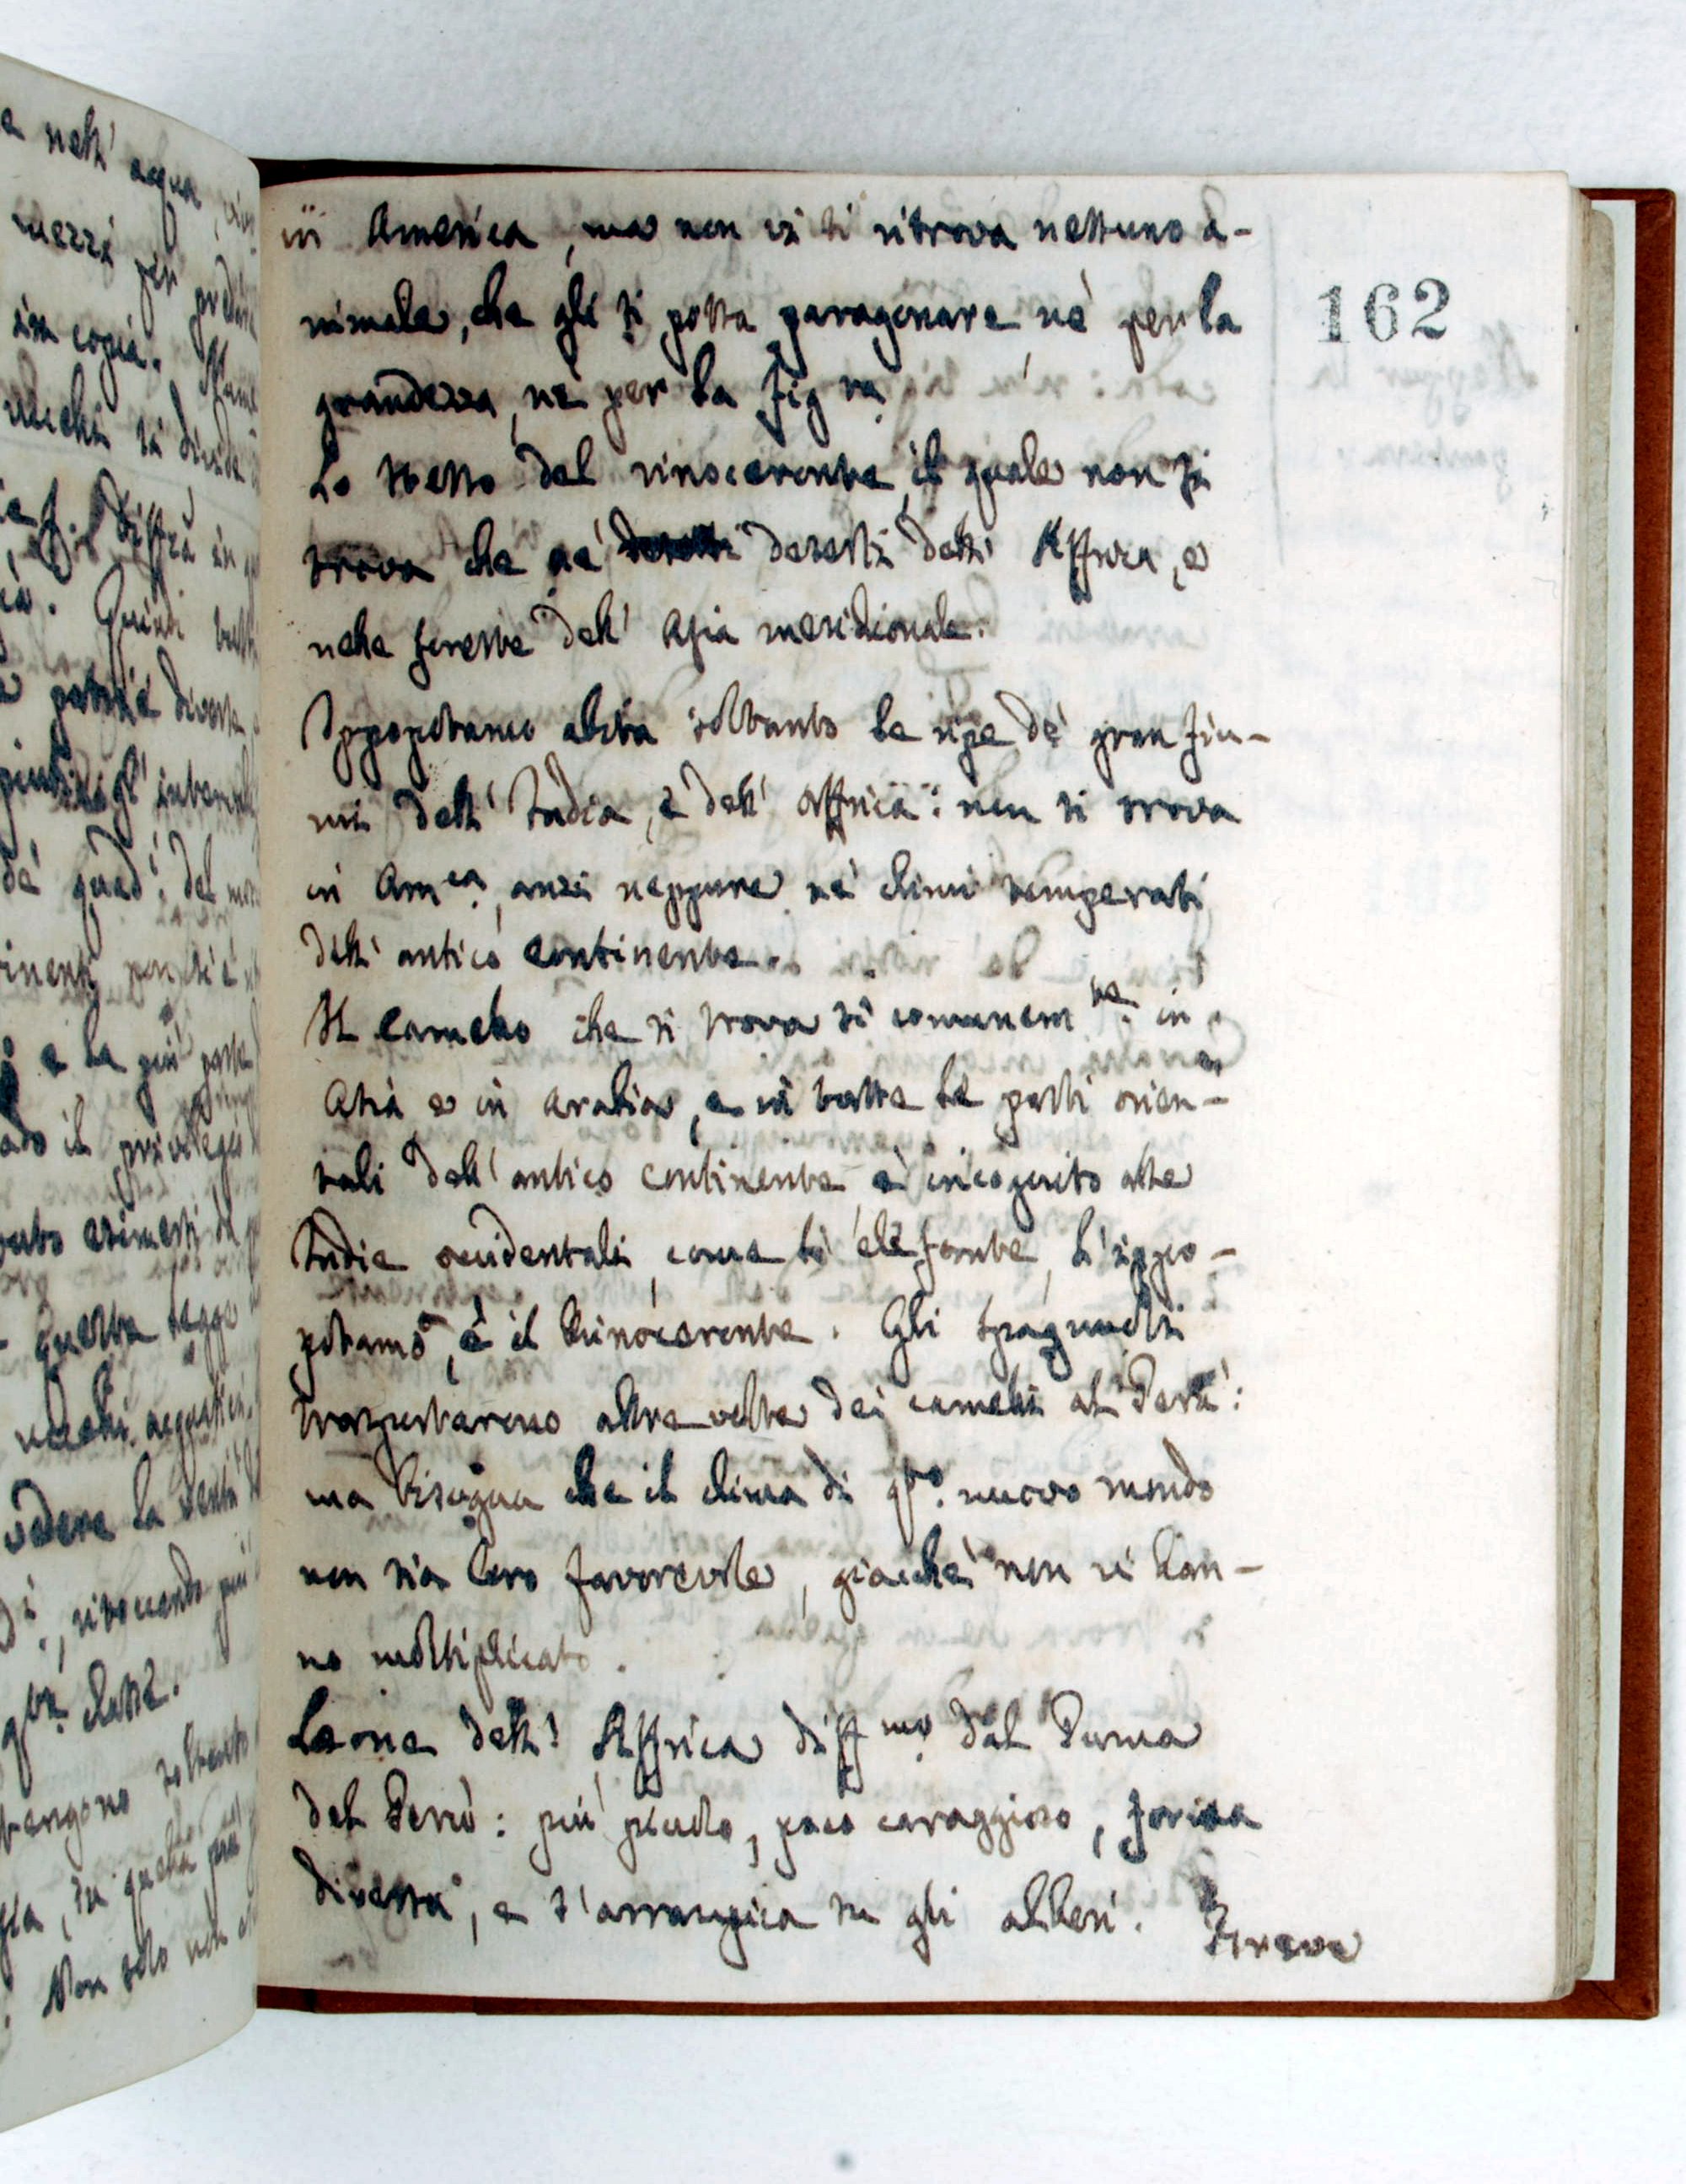 in America, ma non vi si ritrova nessuno a-
nimale, che gli si possa paragonare nè per la
grandezza, nè per la fig.ra
Lo stesso del rinoceronte, il quale non si
trova che ne' deserti dell' Affrica, e
nelle foreste dell' Asia meridionale.
Ippopotamo abita soltanto le ripe de' gran fiu-
mi dell' India, e dell' Affrica: non si trova
in Am.ca, anzi neppure ne' climi temperati
dell' antico continente.
Il camello che si trova sì comunem.te in
Asia e in Arabia, e in tutte le parti orien-
tali dell' antico continente è incognito alle
Indie occidentali, come lo elefante, l'ippo-
potamo, e il Rinoceronte. Gli Spagnuoli
trasportarono altre volte dei camelli al Perù:
ma bisogna che il clima di q.to nuovo mondo
non sia loro favorevole, giacchè non vi han-
no moltiplicato.
Leone dell' Affrica diff.mo dal Puma
del Perù: più piccolo, poco coraggioso, forma
diversa, e s'arrampica su gli alberi.
162
a nell' acqua
mezzi per
in copia.
Quindi
Questa legge
acquatici.
vedere la
q.ta classe.
tengono soltanto
Non solo non